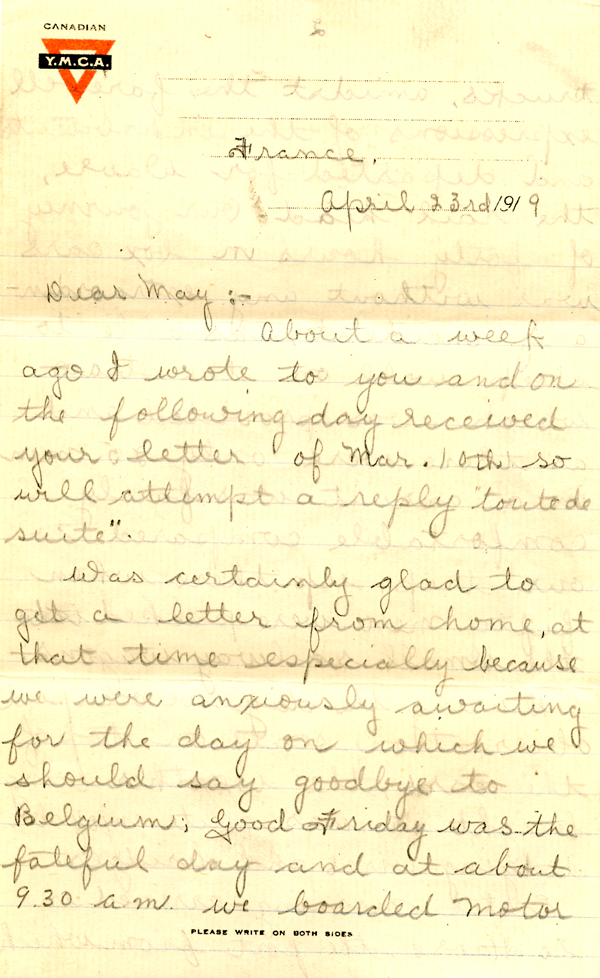 CANADIAN
Y.M.C.A.
2
France,
April 23rd 1919
Dear May :-
About a week
ago I wrote to you and on
the following day received
your letter of Mar. 10th so
will attempt a reply "toute de
suite".
Was certainly glad to
get a letter from home, at
that time especially because
we were anxiously awaiting
for the day on which we
should say goodbye to
Belgium; Good Friday was the
fateful day and at about
9.30 a.m. we boarded motor
PLEASE WRITE ON BOTH SIDES